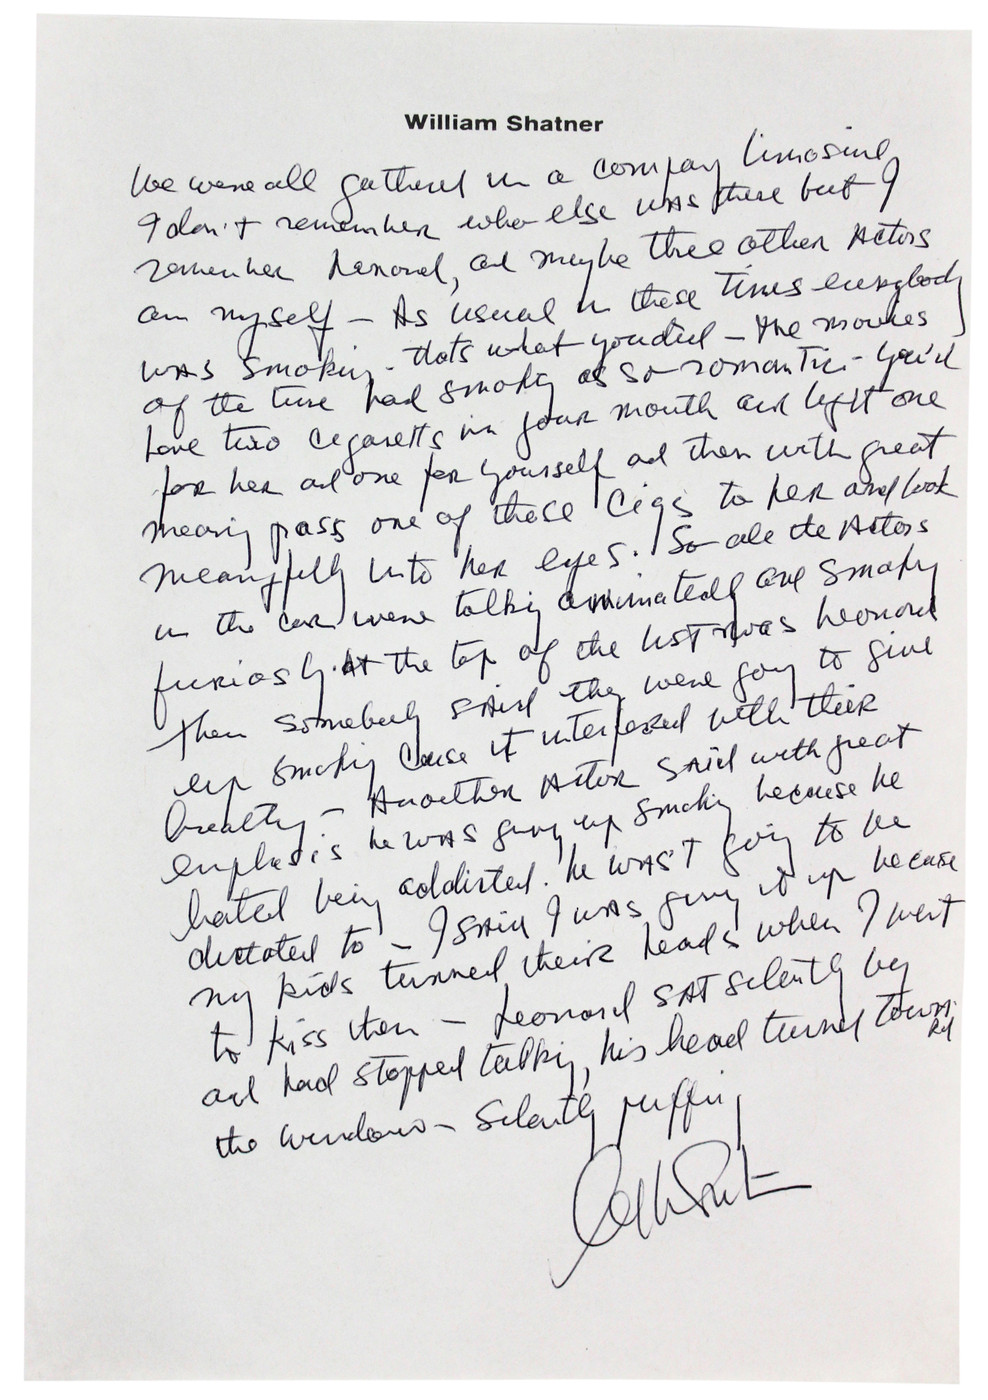 William Shatner
We were all gathered in a company limosine
I don't remember who else was there but I
remember Leonard, and maybe three other Actors
and myself - As usual in these times everybody
was smoking - thats what you did - the movies
of the time had smoking as so romantic - you'd
have two cigaretts in your mouth and light one
for her and one for yourself and then with great
meaning pass one of these cigs to her and look
meaningfully into her eyes. So all the Actors
in the car were talking animatedly and smoking
furiosly. At the top of the list was Leonard
then somebody said they were going to give
up smoking cause it interfered with their
breathing - Another Actor said with great
emphasis he was giving up smoking because he
hated being addicted. he wasn't going to be
dictated to - I said I was giving it up because
my kids turned their heads when I went
to kiss them - Leonard sat silently by
and had stopped talking, his head turned toward
the window - silently puffing